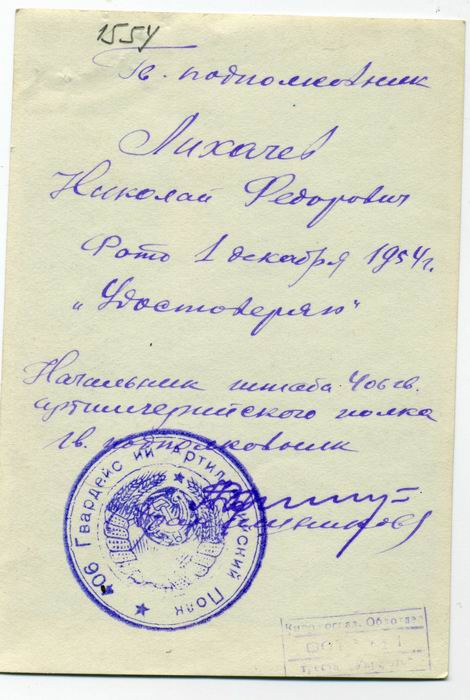 1554
Гв. подполковник
Лихачев
Николай Федорович
Фото 1 декабря 1954 г.
„Удостоверяю"
Начальник штаба 406 гв.
артиллерийского полка
гв. подполковник
406 Гвардейский Артиллерийский Полк
Кировоград. Облотдел